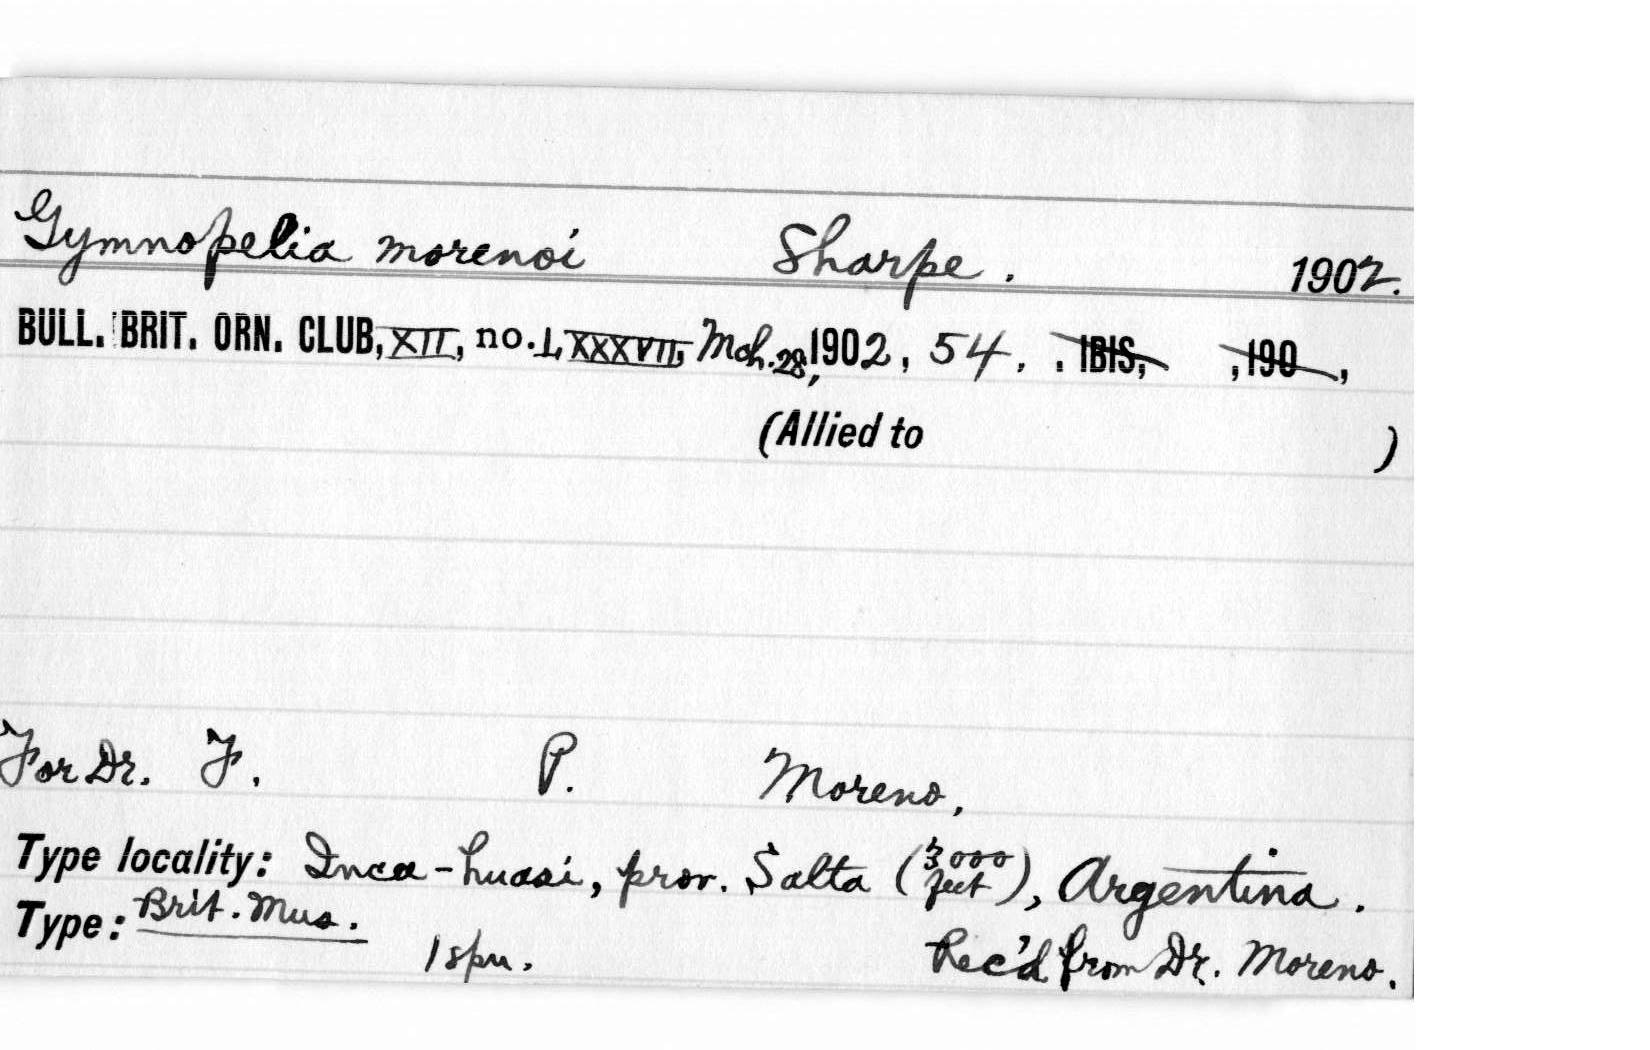 Gymnopelia morenoi Sharpe. 1902.
BULL. BRIT. ORN. CLUB, XII, no. LXXXVII, Mch. 28, 1902, 54. . IBIS, , 190 ,
(Allied to )
For Dr. F. P. Moreno.
Type locality: Inca-huasi, prov. Salta (3000 feet), Argentina.
Type: Brit. Mus.
1 spn. Rec'd from Dr. Moreno.